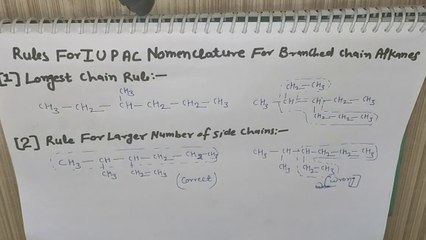 Rules For IUPAC Nomenclature For Branched Chain Alkanes
[1] Longest Chain Rule:-
CH3 CH2-CH3
CH3-CH2-CH-CH2-CH2-CH3 CH3-CH-CH-CH2-CH3
CH2-CH3
[2] Rule For Larger Number of side Chains:-
CH3-CH-CH-CH2-CH2-CH3 CH3-CH-CH-CH2-CH2-CH3
CH3 CH2-CH3 (Correct) CH3 CH2-CH3
(Wrong)